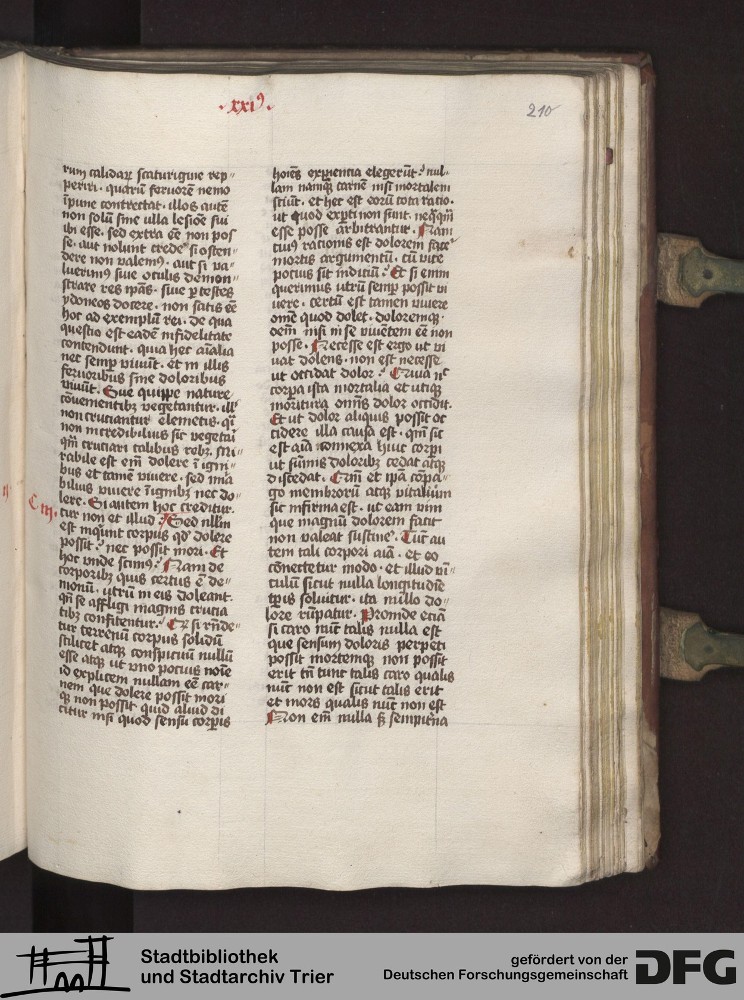 ·xxiꝰ·
210
rum calidaꝝ scaturigine rep-
periri · quarū feruorē nemo
īpune contrectat · illos autē
non solū sine ulla lesiōe sui
ibi esse · sed extra eē non pos
se · aut nolunt credeᷣ si osten-
dere non valemꝰ · aut si va-
luerimꝰ siue oculis demon-
strare res ip̄as · siue ꝑ testes
ydoneos docere · non satis eē
hoc ad exemplū rei · de qua
questio est eadē infidelitate
contendunt · quia hec aīalia
nec semꝑ viuūt · et in illis
feruoribus sine doloribus
viuūt · Sue quippe nature
cōuenientibꝫ vegetantur · illꝭ
non cruciantur elemētis · qͣi
non incredibiliꝰ sit vegetari
qͣm cruciari talibus rebꝫ · Mi-
rabile est em̄ dolere ī igni-
bus et tamē viuere · sed mira
bilius viuere ī ignibꝫ nec do-
lere · Si autem hoc creditur ·
C iij.
cur non et illud · Sed nllm̄
est inquiunt corpus qd̓ dolere
possit · nec possit mori · Et
hoc vnde scimꝰ · Nam de
corporibꝫ quis certus ē de-
monū · utrū in eis doleant ·
qn̄ se affligi magnis crucia
tibꝫ confitentur · Et si rn̄de-
tur terrenū corpus solidū
scilicet atqꝫ conspicuū nullū
esse atqꝫ ut vno potius noīe
id explicem nullam eē car-
nem que dolere possit mori
qꝫ non possit quid aliud di
citur nisi quod sensu corꝑis
hoīes experiencia elegerūt · nul-
lam namqꝫ carnē nisi mortalem
sciūt · et hec est eorū tota ratio ·
ut quod exꝑti non sunt · neqͣqͣm
esse posse arbitrantur · Nam
cuiꝰ rationis est dolorem facēͤ
mortis argumentū · cū vite
pocius sit indiciū · Et si enim
querimus utrū semꝑ possit vi
uere · certū est tamen viuere
om̄e quod dolet · doloremqꝫ
oēm nisi in se viuētem eē non
posse · Necesse est ergo ut vi
uat dolens · non est necesse
ut occidat dolor · Quia nͨ
corpa ista mortalia et utiqꝫ
moritura om̄is dolor occidit ·
Et ut dolor aliquis possit oc
cidere illa causa est · qm̄ sic
est aīa connexa huic corpi
ut sūmis doloribꝫ cedat atqꝫ
discedat · Qm̄ et ip̄a cōpa-
go membrorū atqꝫ vitaliūm
sic infirma est · ut eam vim
que magnū dolorem facit
non valeat sustineᷣ · Tūc au
tem tali corpori aīa · et eo
cōnectetur modo · et illud vī-
culū sicut nulla longitudīe
tp̄is soluitur · ita nullo do-
lore rūpatur · Proinde etiā
si caro nūc talis nulla est
que sensum doloris perpeti
possit mortemqꝫ non possit
erit tn̄ tunc talis caro qualis
nūc non est sicut talis erit
et mors qualis nūc non est
Non em̄ nulla sꝫ sempit̓na
Stadtbibliothek
und Stadtarchiv Trier
gefördert von der
Deutschen Forschungsgemeinschaft
DFG